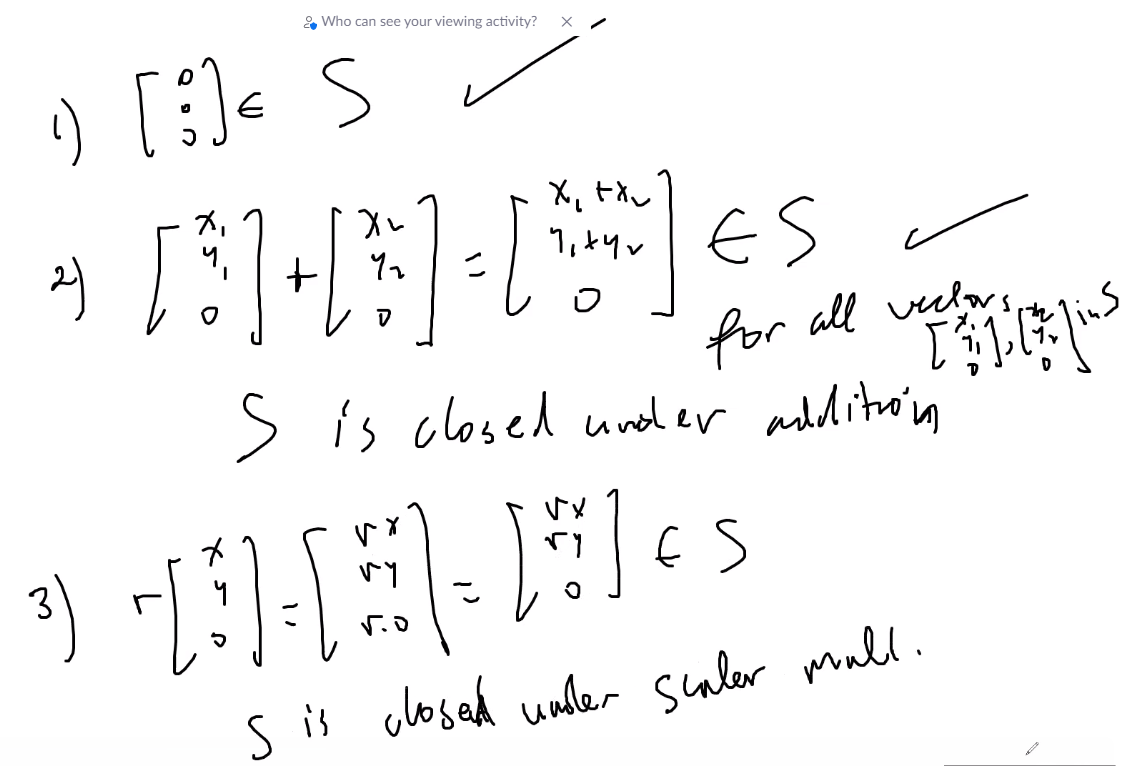 Who can see your viewing activity? ×
1) [0 0 0] ∈ S ✓
2) [x₁ y₁ 0] + [x₂ y₂ 0] = [x₁+x₂ y₁+y₂ 0] ∈ S ✓
for all vectors [x₁ y₁ 0], [x₂ y₂ 0] in S
S is closed under addition
3) r[x y 0] = [rx ry r.0] = [rx ry 0] ∈ S
S is closed under scaler mult.